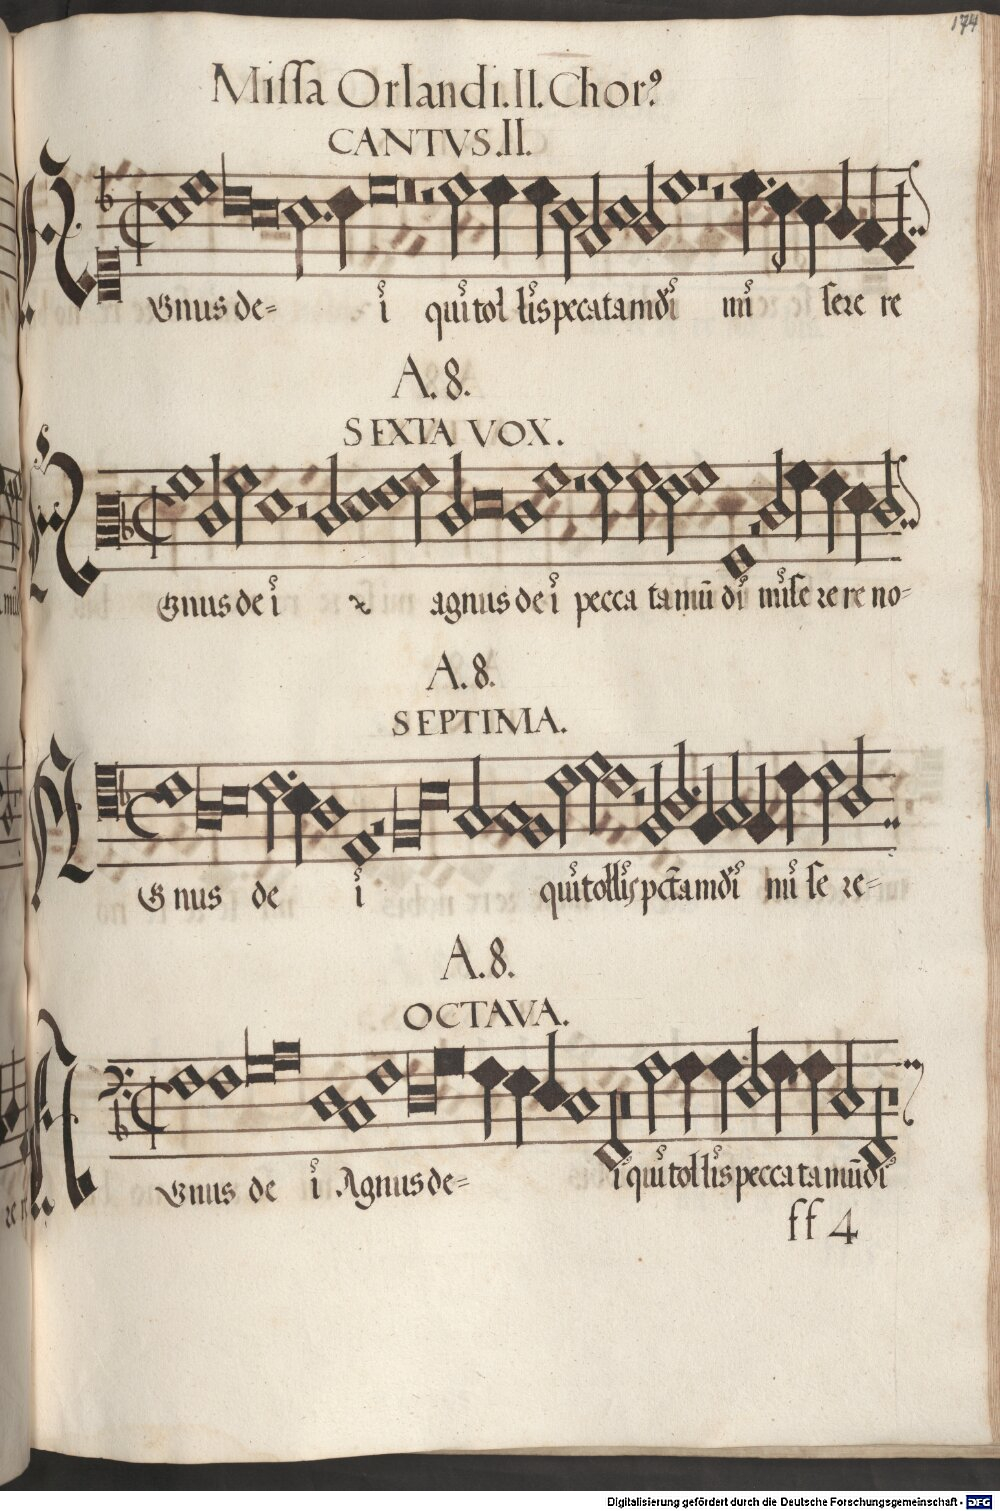 174
Missa Orlandi. II. Chorꝰ
CANTVS. II.
Gnus de= i qui tol lis pecata mūdi mi sere re
A. 8.
SEXTA VOX.
Gnus de i agnus de i pecca ta mūdi mise re re no=
A. 8.
SEPTIMA.
Gnus de i qui tollis pctā mūdi mi se re=
A. 8.
OCTAVA.
Gnus de i Agnus de= i qui tollis pecca ta mūdi
ff 4
Digitalisierung gefördert durch die Deutsche Forschungsgemeinschaft - DFG